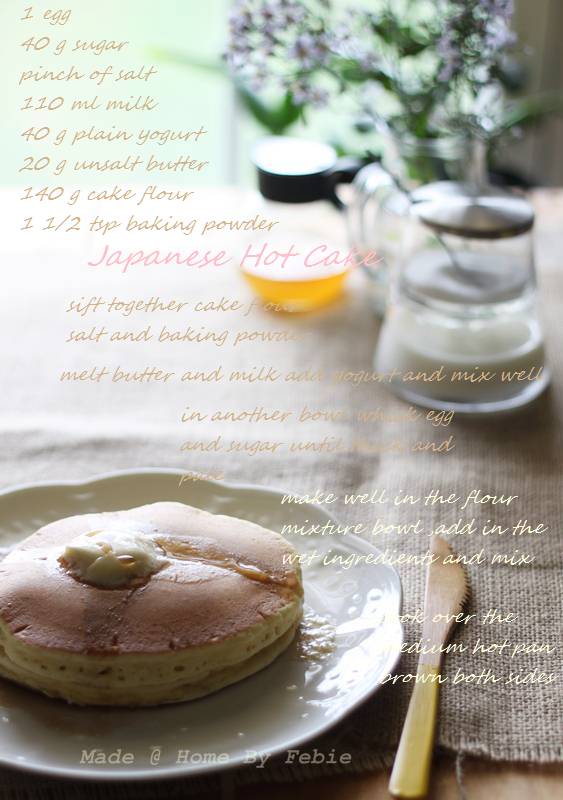 1 egg
40 g sugar
pinch of salt
110 ml milk
40 g plain yogurt
20 g unsalt butter
140 g cake flour
1 1/2 tsp baking powder
Japanese Hot Cake
sift together cake flour
salt and baking powder
melt butter and milk add yogurt and mix well
in another bowl whisk egg
and sugar until thick and
pale
make well in the flour
mixture bowl ,add in the
wet ingredients and mix
cook over the
medium hot pan
brown both sides
Made @ Home By Febie